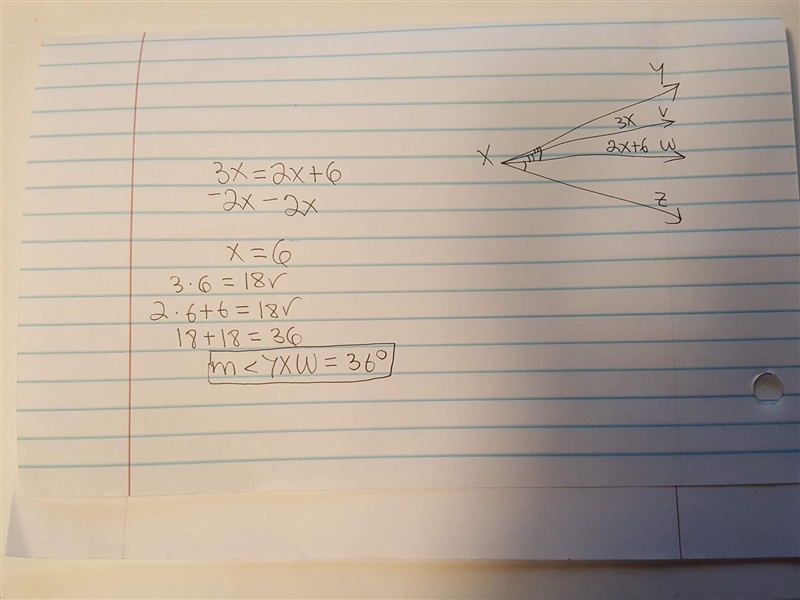 Y
3x V
X 2x+6 W
Z
3x = 2x+6
-2x -2x
x = 6
3·6 = 18✓
2·6+6 = 18✓
18+18 = 36
m<YXW = 36°